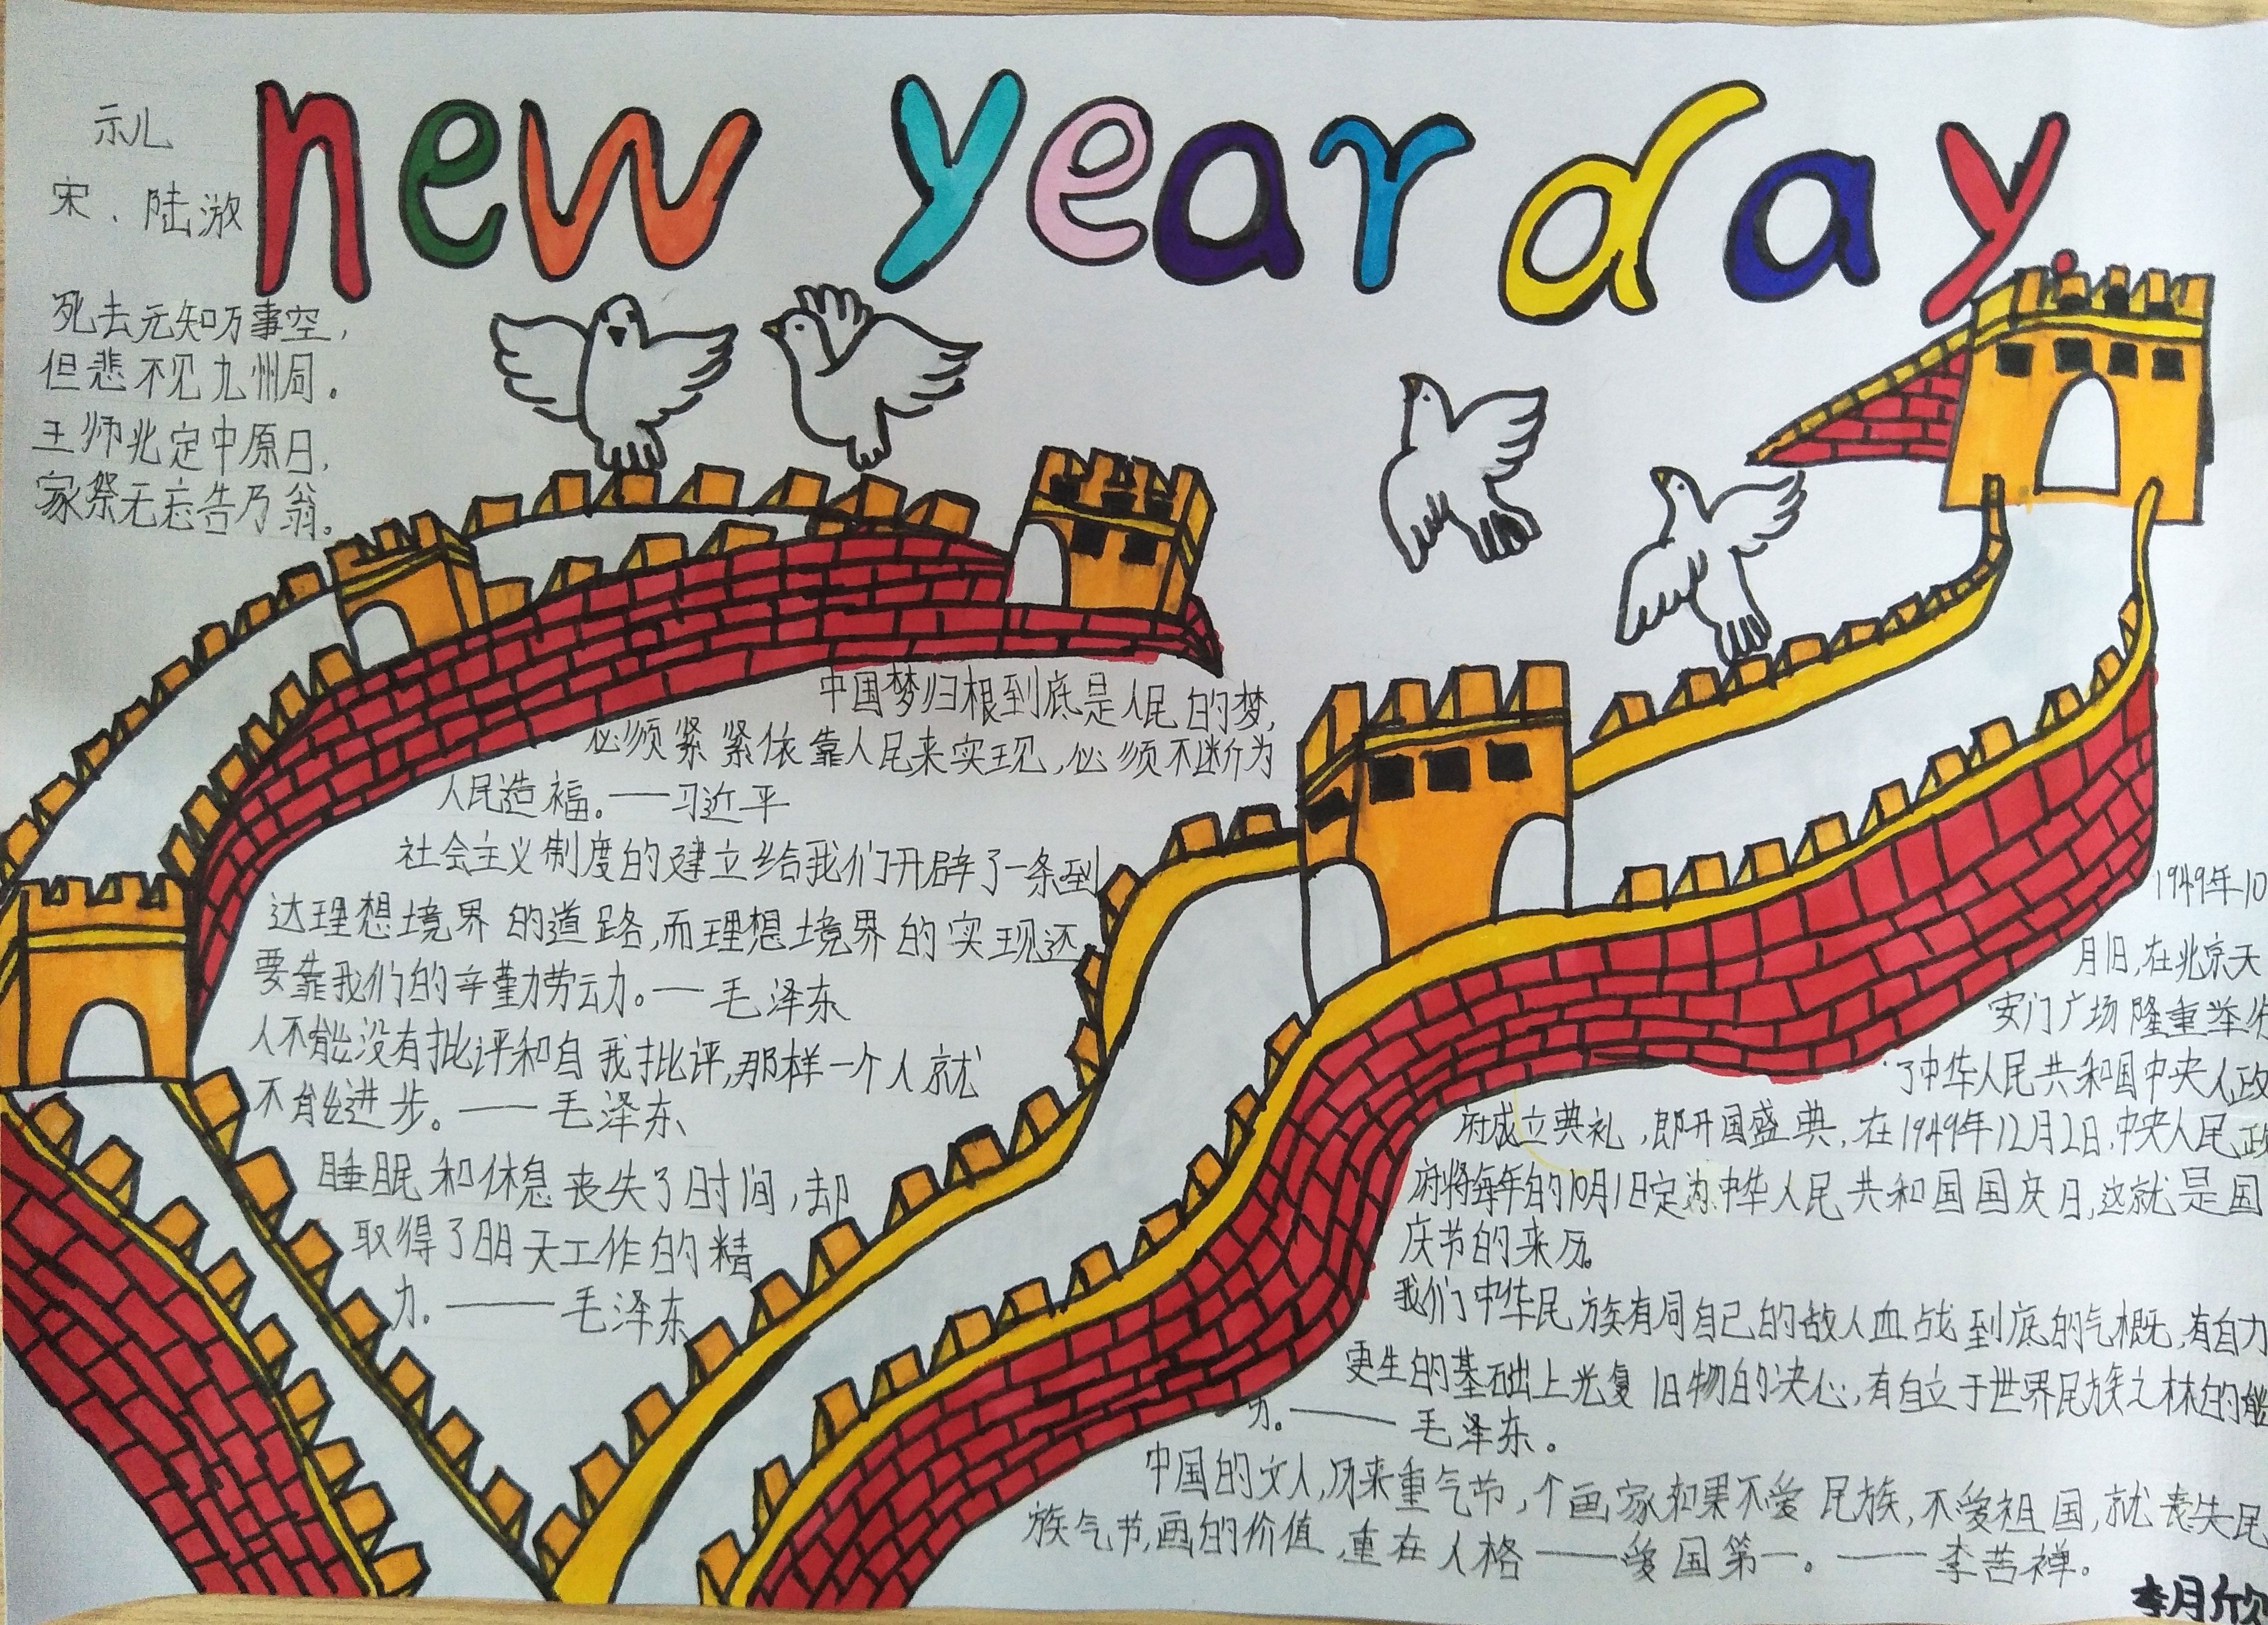 new year day
示儿
宋、陆游
死去元知万事空，
但悲不见九州同。
王师北定中原日，
家祭无忘告乃翁。
中国梦归根到底是人民的梦，
必须紧紧依靠人民来实现，必须不断为
人民造福。——习近平
社会主义制度的建立给我们开辟了一条到
达理想境界的道路，而理想境界的实现还
要靠我们的辛勤劳动。—毛泽东
人不能没有批评和自我批评，那样一个人就
不能进步。——毛泽东
睡眠和休息丧失了时间，却
取得了明天工作的精
力。——毛泽东
1949年10
月1日，在北京天
安门广场隆重举
了中华人民共和国中央人政
府成立典礼，即开国盛典，在1949年12月2日，中央人民政
府将每年的10月1日定为中华人民共和国国庆日，这就是国
庆节的来历。
我们中华民族有同自己的敌人血战到底的气概，有自力
更生的基础上光复旧物的决心，有自立于世界民族之林的能
力。——毛泽东。
中国的文人，历来重气节，个画家如果不爱民族，不爱祖国，就丧失民
族气节，画的价值，重在人格——爱国第一。——李苦禅。
李月欣